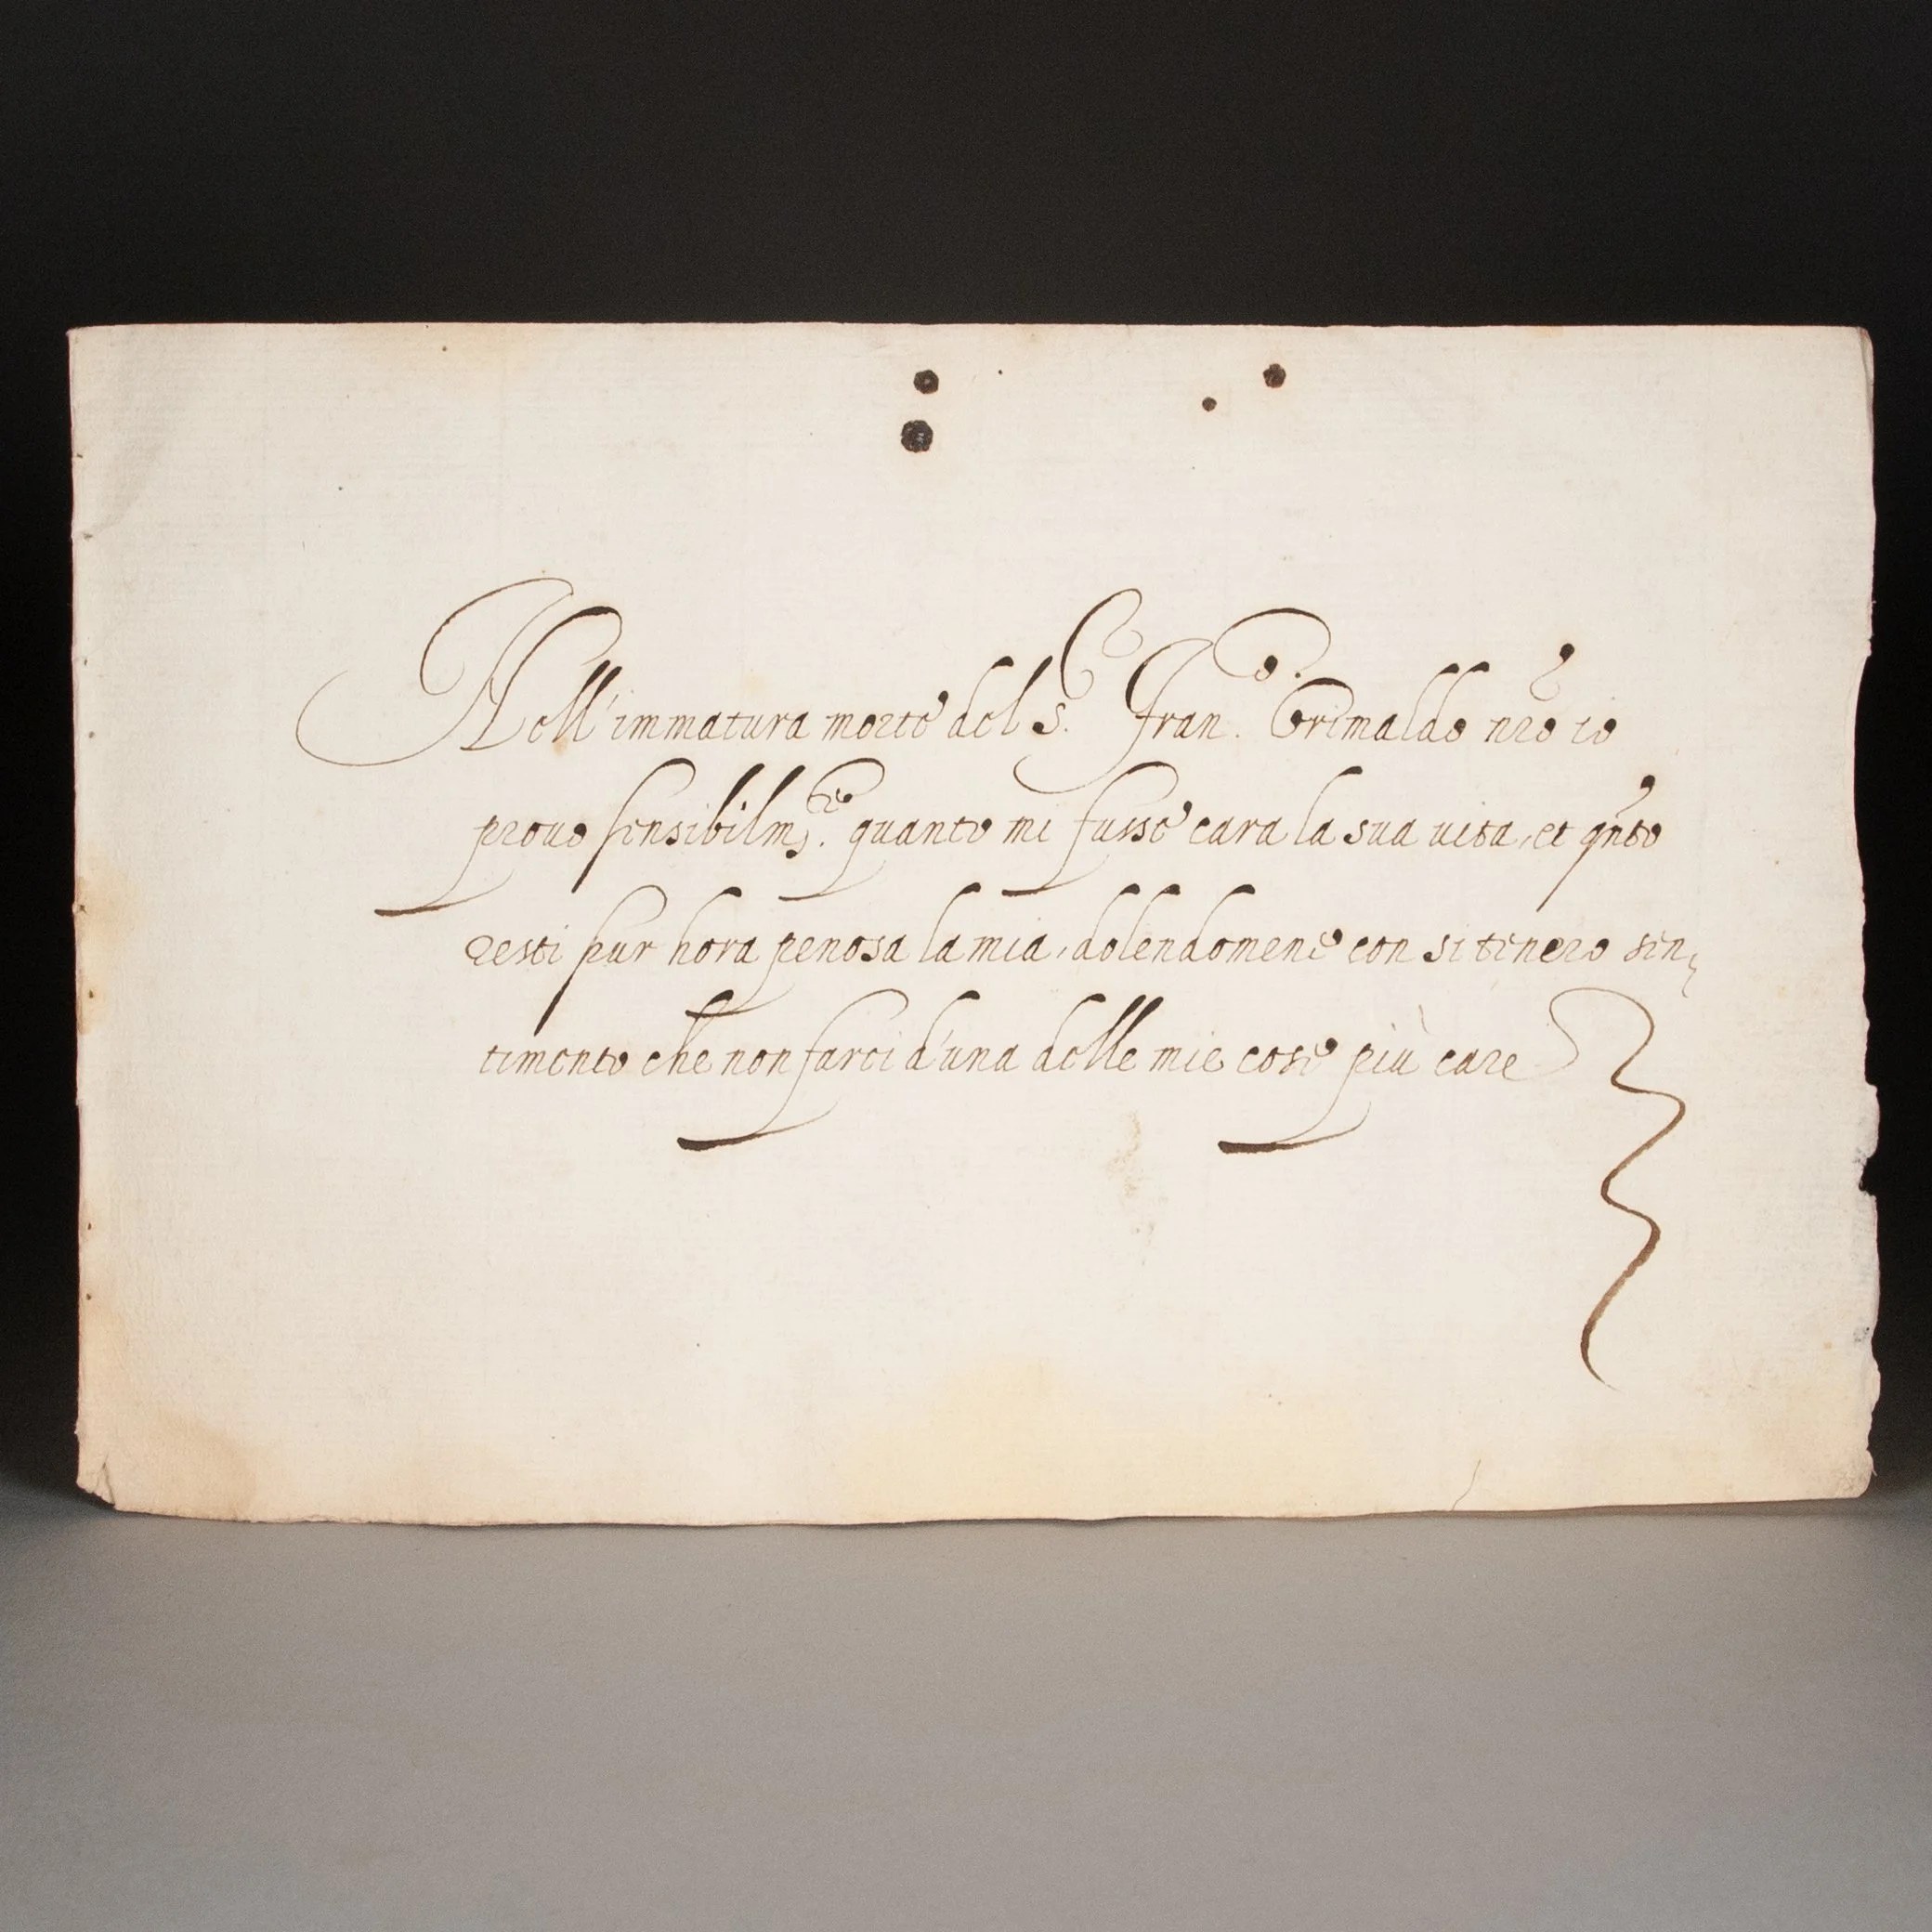 Nell'immatura morte del S.r Fran.o Grimaldo nro io
provo sensibilm.te quanto mi fusse cara la sua vita, et qnto
resti pur hora penosa la mia, dolendomene con si tenero sen,
timento che non farei d'una delle mie cose più care